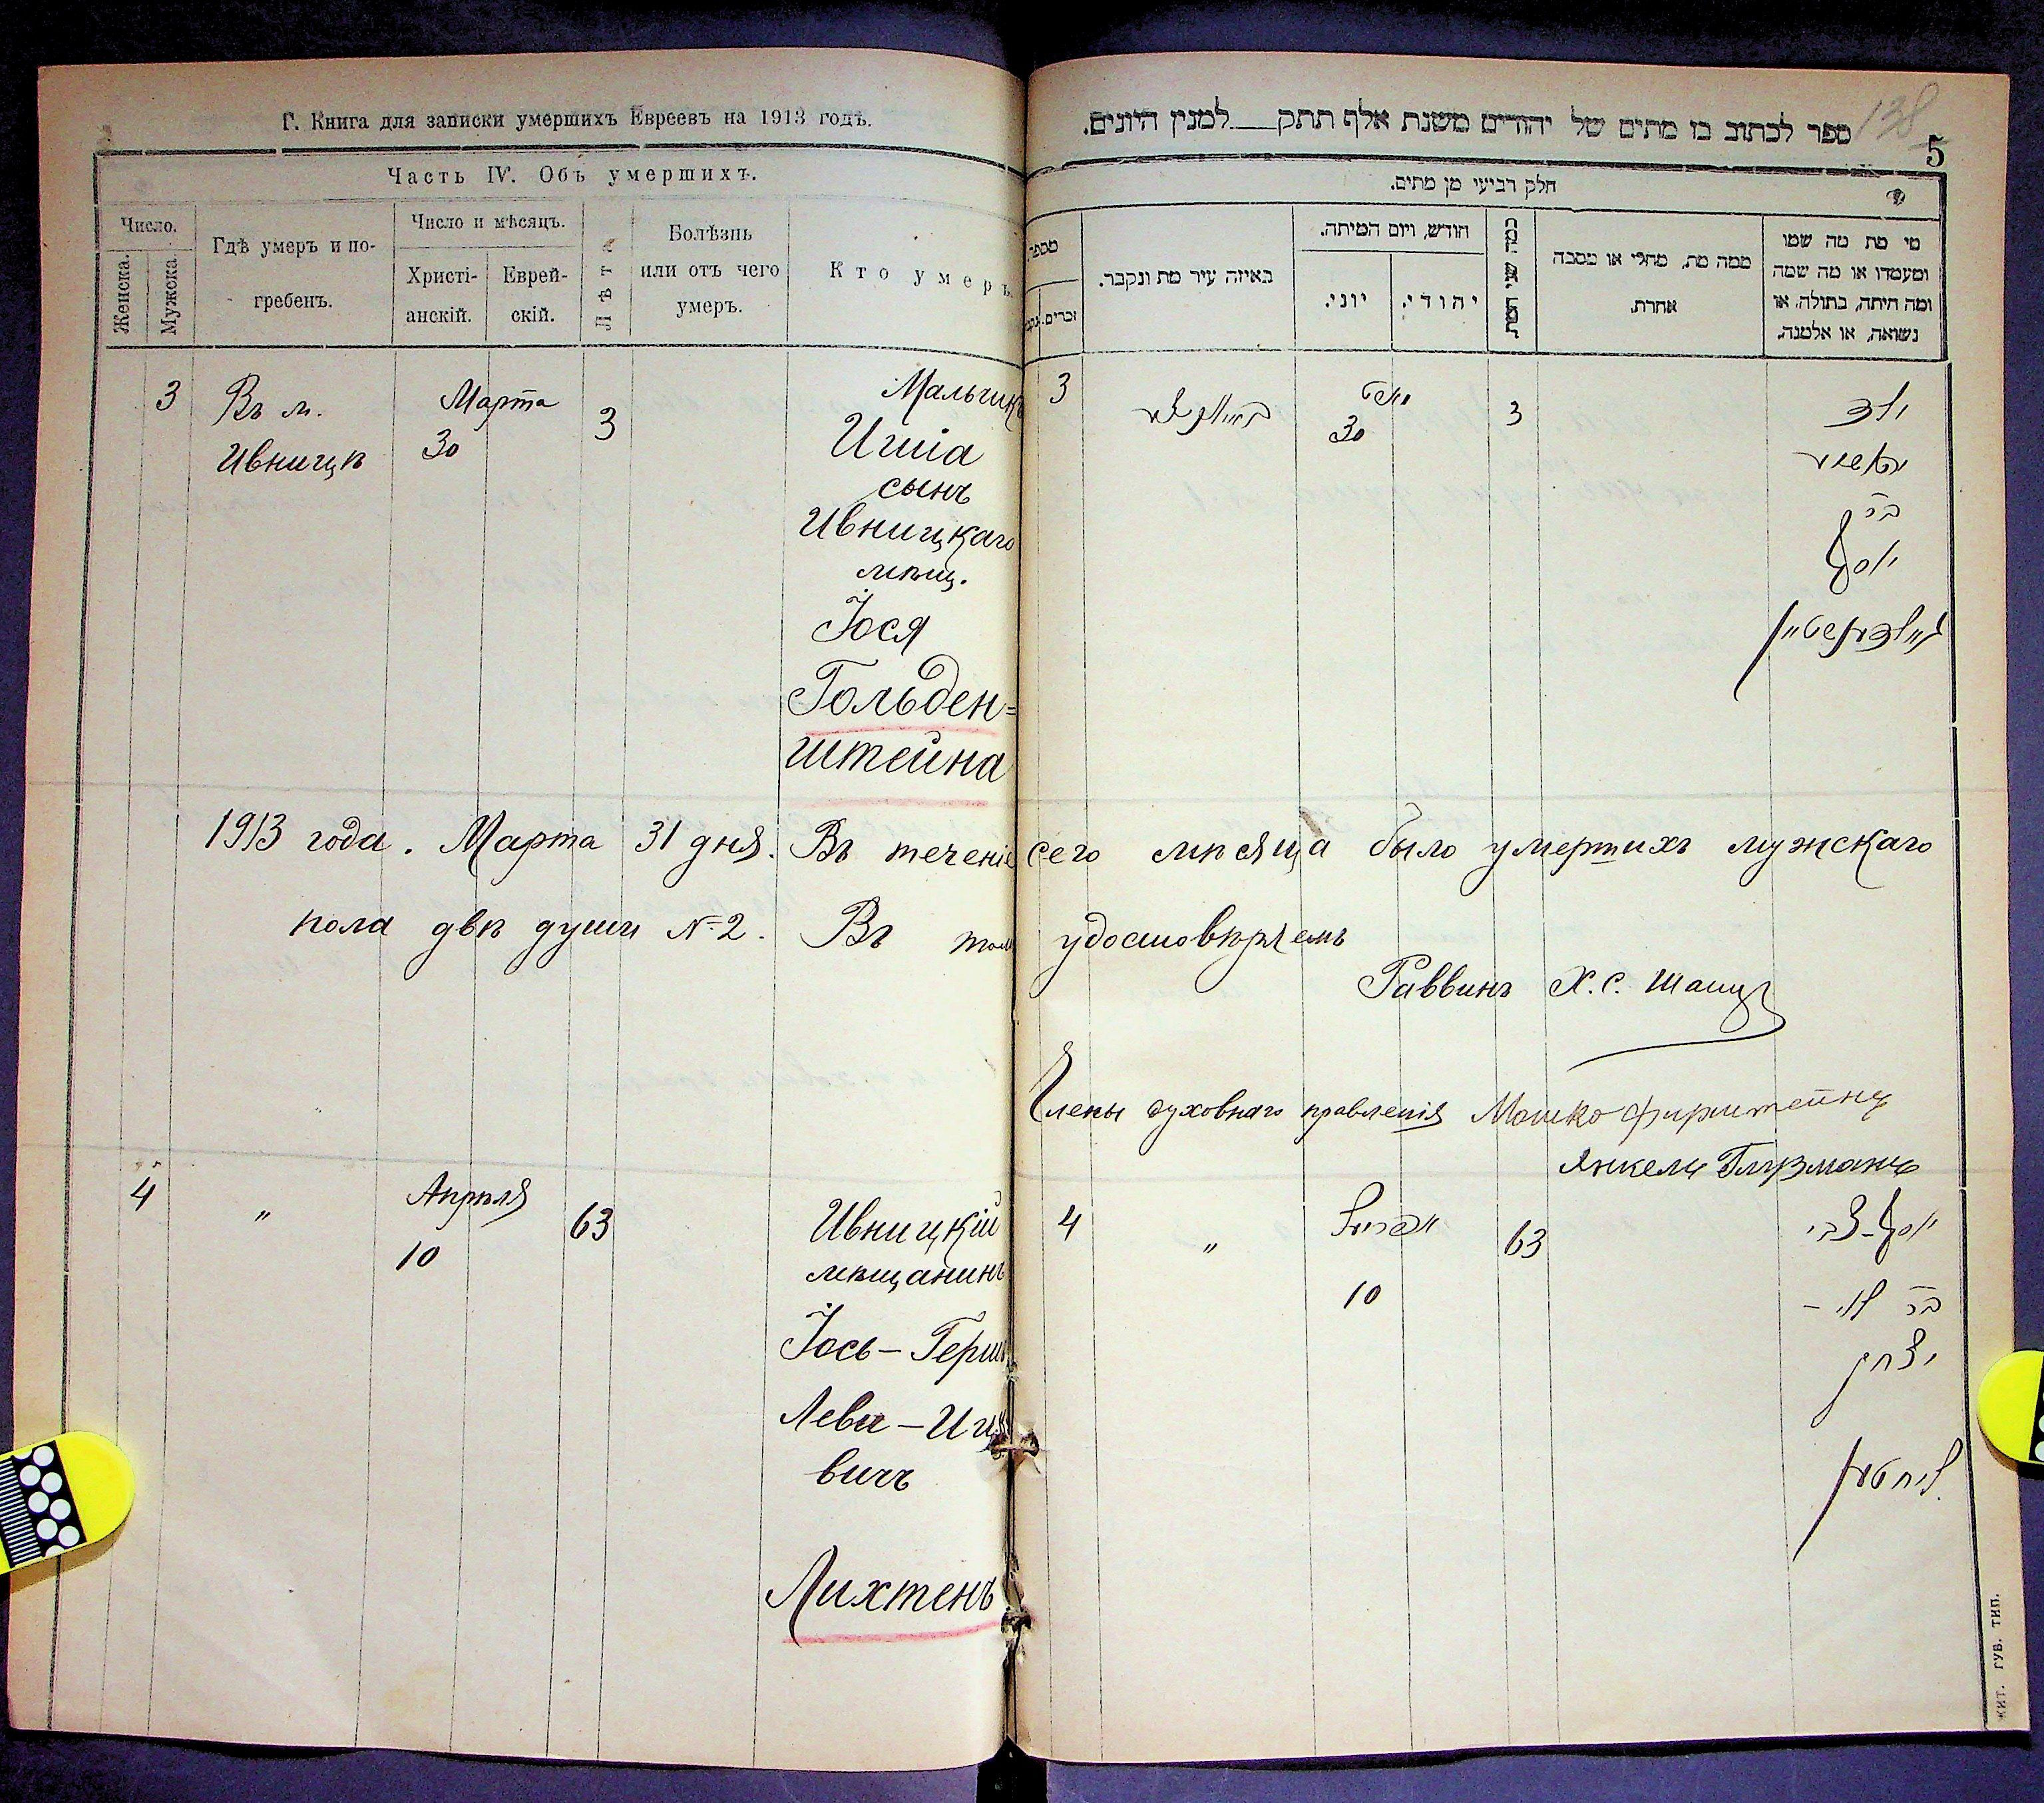 Г. Книга для записки умершихъ Евреевъ на 1913 годъ.
Часть IV. Объ умершихъ.
Число.
Женска.
Мужска.
Гдѣ умеръ и по-
гребенъ.
Число и мѣсяцъ.
Христі-
анскій.
Еврей-
скій.
Лѣта
Болѣзнь
или отъ чего
умеръ.
Кто умеръ.
3
Въ м.
Ивницѣ
Марта
30
3
Мальчикъ
Ишіа
сынъ
Ивницкаго
мѣщ.
Іося
Гольден=
штейна
138
ספר לכתוב בו מתים של יהודים משנת אלף תתק___למנין היונים.
5
חלק רביעי מן מתים.
מספר.
זכרים.
באיזה עיר מת ונקבר.
חודש, ויום המיתה.
יוני.
יהודי.
כמה שני חיות
ממה מת, מחלי או מסבה
אחרת.
מי מת מה שמו
ומעמדו או מה שמה
ומה היתה, בתולה, או
נשואה, או אלמנה.
3
מארט
30
3
ילד
בר
יוסף
גאלדענשטיין
1913 года. Марта 31 дня. Въ теченіе сего мѣсяца было умершихъ мужскаго
пола двѣ души №2. Въ томъ удостовѣряемъ
Раввинъ Х.С.
Члены духовнаго правленія Мошко
Янкель Глузманъ
4
"
Апрѣля
10
63
Ивницкій
мѣщанинъ
Іось-Герш
Леви-Иц
вичъ
Лихтенъ
4
"
אפריל
10
63
יוסף-צבי
בר לוי -
יצחק
ליחטען
ЖИТ. ГУБ. ТИП.